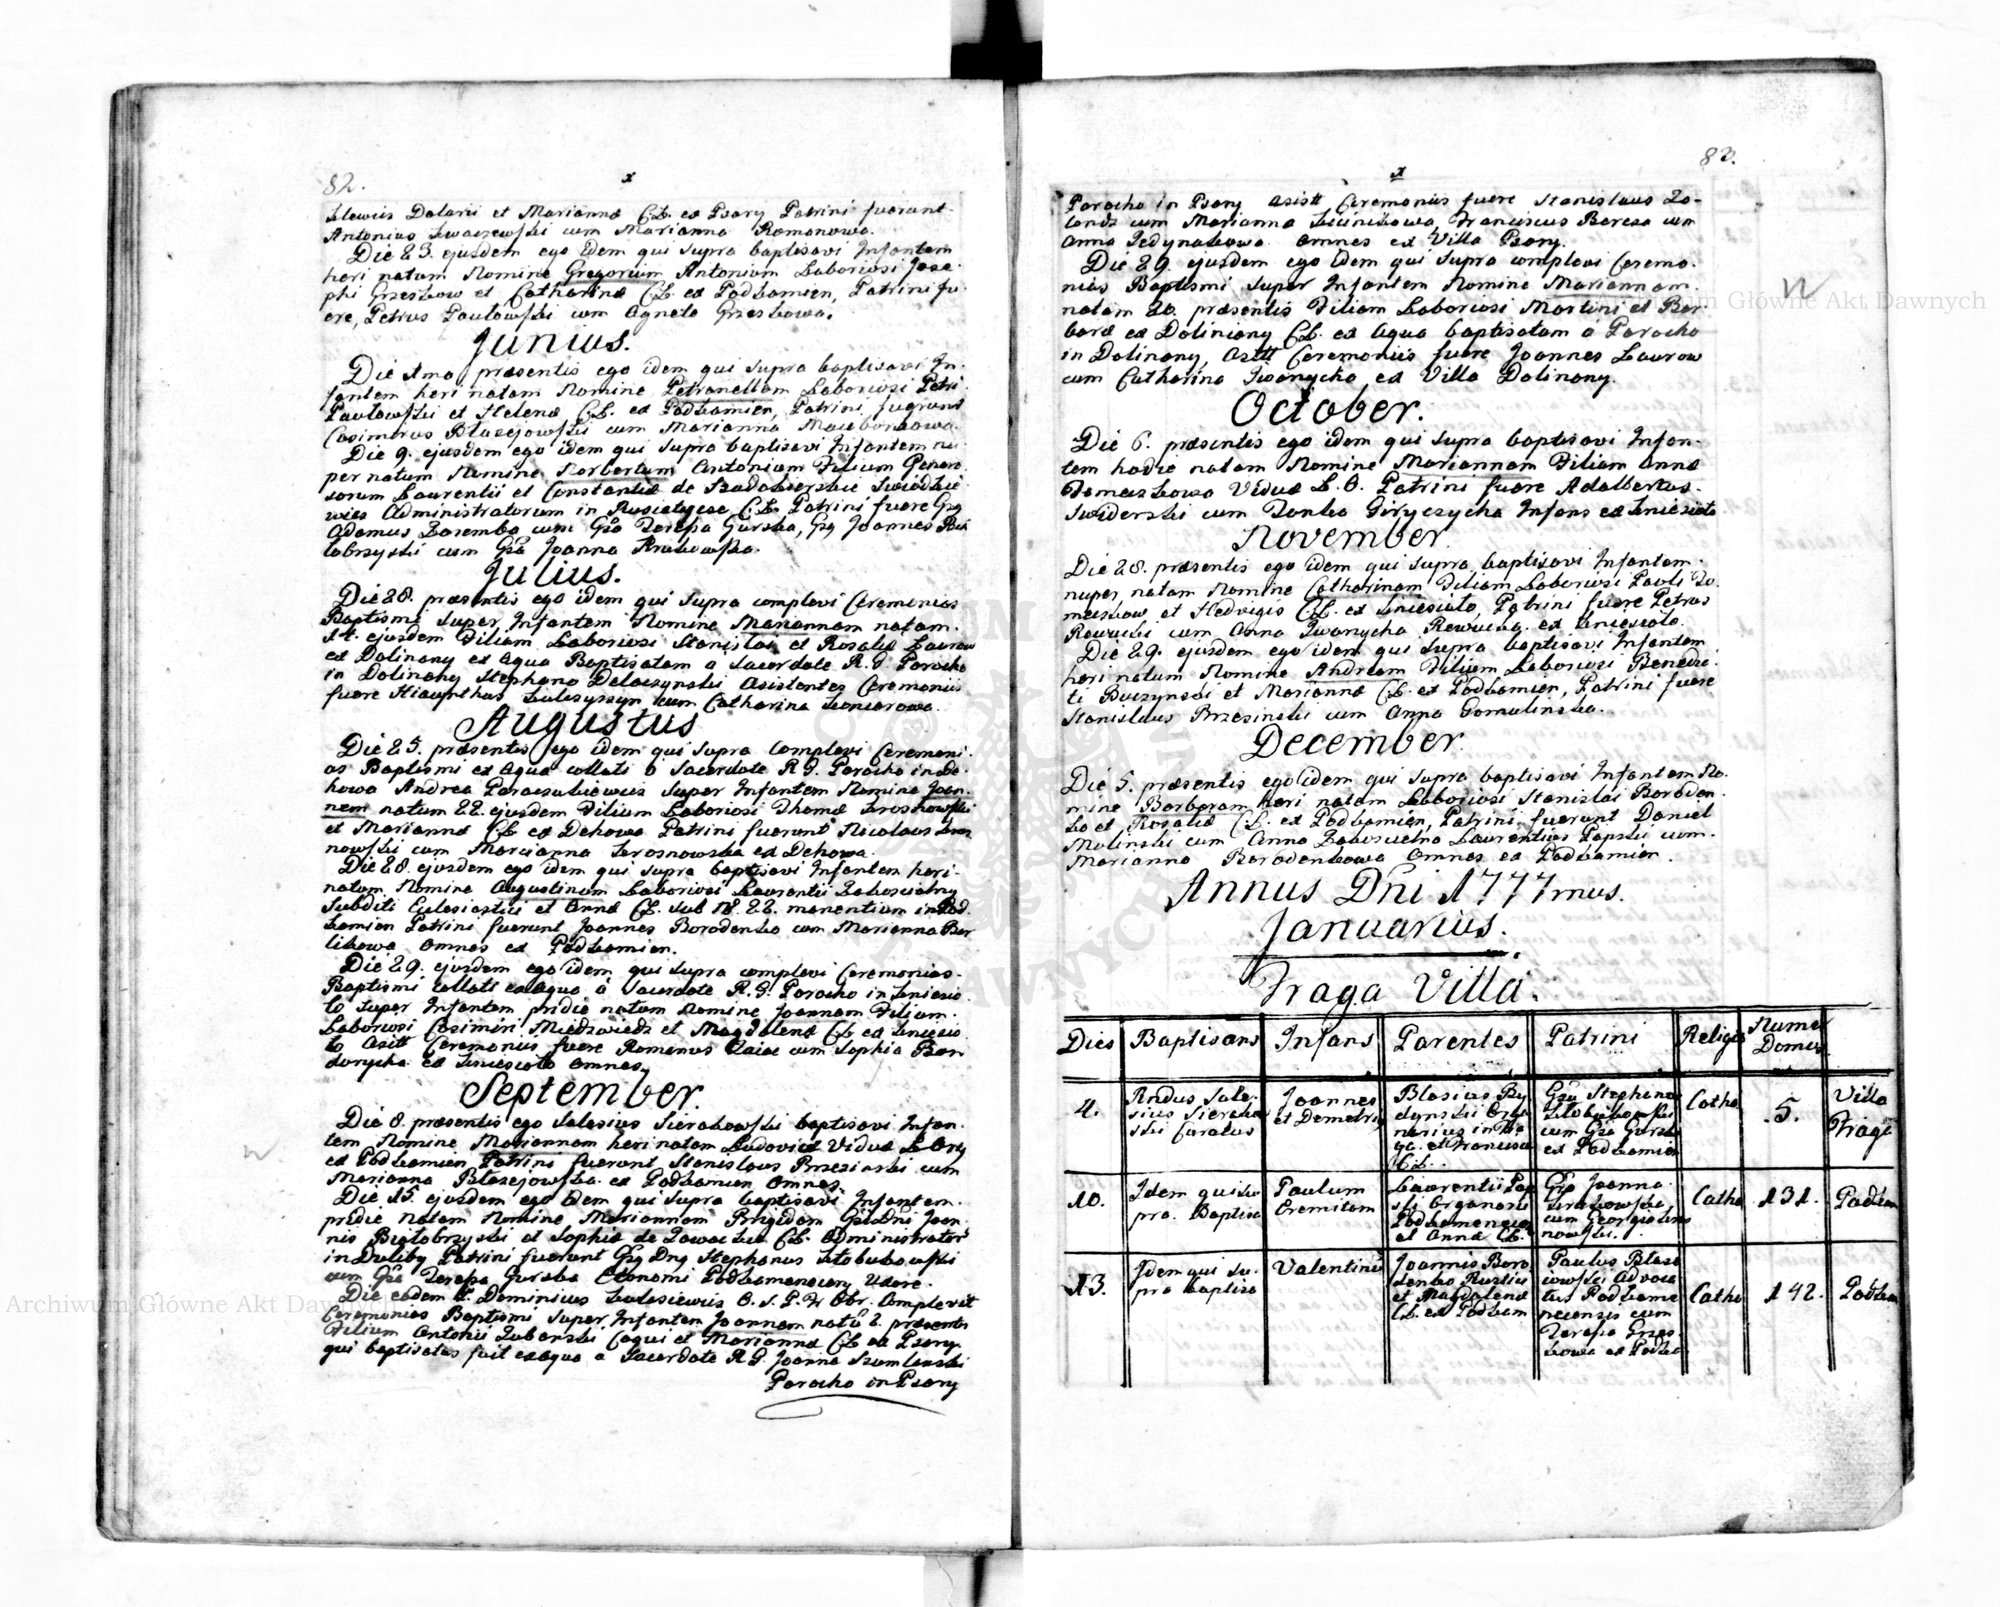 82.
x
lewicz Dolarii et Mariannæ C.L. ex Psary Patrini fuerunt
Antonius cum Marianna Romanowa.
Die 23. ejusdem ego idem qui supra baptisavi Infantem
heri natum Nomine Gregorium Antonium Laboriosi Jose-
phi Grzeskow et Catharinæ C.L. ex Podkamien, Patrini fu-
ere, Petrus Pawłowski cum Agneta Grzeskowa.
Junius.
Die 1ma præsentis ego idem qui supra baptisavi In-
fantem heri natam Nomine Petronellam Laboriosi Petri
Pawłowski et Helenæ C.L. ex Podkamien, Patrini fuerunt
Casimirus Błazejowski cum Marianna
Die 9. ejusdem ego idem qui supra baptisavi Infantem nu-
per natum Nomine Norbertum Antonium Filium Genero-
sorum Laurentii et Constantiæ de
Administratorum in C.L. Patrini fuere Gsg
Adamus Zaremba cum Gsa Teresa Gurska, Gsg Joannes Bia
łobrzyski cum Gsa Joanna
Julius.
Die 20. præsentis ego idem qui supra complevi Ceremonias
Baptismi super Infantem Nomine Mariannam natam
14. ejusdem Filiam Laboriosi Stanislai et Rosaliæ Laurow
ex Dolinany ex aqua Baptisatam a Sacerdote R. G. Parocho
in Dolinany Stephano Delaczynski Asistentes Ceremoniis
fuere Hiacynthus cum Catharina
Augustus
Die 25. præsentis ego idem qui supra complevi Ceremoni-
as Baptismi ex aqua collati a Sacerdote R. G. Parocho in De-
howa Andrea super Infantem Nomine Joan-
nem natum 22. ejusdem Filium Laboriosi Thomæ
et Mariannæ C.L. ex Dehowa Patrini fuerunt Nicolaus
nowski cum Marianna Krosnowska ex Dehowa.
Die 28. ejusdem ego idem qui supra baptisavi Infantem heri
natum Nomine Augustinum Laboriosi Laurentii
Subditi Eclesiastici et Annæ C.L. sub N. 22. manentium in Pod-
kamien Patrini fuerunt Joannes Borodenko cum Marianna Ber
likowa omnes ex Podkamien.
Die 29. ejusdem ego idem qui supra complevi Ceremonias
Baptismi collati ex aqua a Sacerdote R. G. Parocho in Kniesio-
ło super Infantem pridie natam Nomine Joannam Filiam
Laboriosi Casimiri Miedzwiedz et Magdalenæ C.L. ex Kniesio-
ło Asitt Ceremoniis fuere Romanus cum Sophia Bon
darycha ex Kniesioło omnes.
September.
Die 8. præsentis ego Salesius Sierakowski baptisavi Infan-
tem Nomine Mariannam heri natam Ludovicæ Viduæ
ex Podkamien Patrini fuerunt Stanislaus Brzezinski cum
Marianna Błazejowska ex Podkamien omnes.
Die 15. ejusdem ego idem qui supra baptisavi Infantem
pridie natam Nomine Mariannam Brigidam Gsi Dni Joan-
nis Białobrzyski et Sophiæ de C.L. Administrator
in Duliby Patrini fuerunt Gsg Dng Stephanus
cum Gsa Teresa Gurska Œconomi Podkamenecieny Uxore.
Die eodem P. Dominicus O. S. P. Complevit
Ceremonias Baptismi super Infantem Joannem natū 2. præsentis
Filium Antonii Coqui et Mariannæ C.L. ex Psary
qui baptisatus fuit ex aqua a Sacerdote R. G. Joanne Szumlanski
Parocho in Psary
83.
x
Parocho in Psary Asistt Ceremoniis fuere Stanislaus Zo-
cum Marianna Franciscus Bereza cum
Anna Jedynakowa omnes ex Villa Psary.
Die 29. ejusdem ego idem qui supra complevi Ceremo-
nias Baptismi super Infantem Nomine Mariannam
natam 20. præsentis Filiam Laboriosi Martini et Bar-
baræ ex Doliniany C.L. ex aqua baptisatam a Parocho
in Dolinany, Asitt Ceremoniis fuere Joannes Laurow
cum Catharina Iwanycha ex Villa Dolinany.
October.
Die 6. præsentis ego idem qui supra baptisavi Infan-
tem hodie natam Nomine Mariannam Filiam Annæ
Viduæ L. O. Patrini fuere Adalbertus
Swiderski cum Giryczycha Infans ex Kniesioło
November
Die 28. præsentis ego idem qui supra baptisavi Infantem
nuper natam Nomine Catharinam Filiam Laboriosi Pauli
et Hedvigis C.L. ex Kniesioło, Patrini fuere Petrus
cum Anna Iwanycha ex Kniesioło.
Die 29. ejusdem ego idem qui supra baptisavi Infantem
heri natum Nomine Andream Filium Laboriosi Benedic-
ti Buczynski et Mariannæ C.L. ex Podkamien, Patrini fuere
Stanislaus Brzesinski cum Anna Gomulinska.
December.
Die 5. præsentis ego idem qui supra baptisavi Infantem No-
mine Barbaram heri natam Laboriosi Stanislai Boroden-
ko et Rosaliæ C.L. ex Podkamien, Patrini fuerunt Daniel
Malinski cum Anna Laurentius Papski cum
Marianna Borodenkowa omnes ex Podkamien.
Annus Dni 1777mus.
Januarius.
Fraga Villa.
Dies Baptisans Infans Parentes Patrini Religio Nume Domus
4. Rndus Sale- sius Sierako- wski Curatus Joannes et Demetrig Blasius Ry- dynski Orga- narius in Fra- ga et Francisca C.L. Gsg Stephanus cum Gsa Gurska ex Podkamien Catho 5. Villa Fraga
10. Idem qui su- pra Baptisa Paulum Eremitam Laurentii Pap- ski Organarii Podkamenecien et Annæ C.L. Gsa Joanna cum Georgio nowski. Catho 131. Podkam
13. Idem qui su- pra baptisa Valentinū Joannis Boro- denko Rustici et Magdalenæ C.L. ex Podkam Paulus Błaze- iowski Advoca- tus Podkame- necensis cum Teresa Grzes- kowa ex Podka Catho 142. Podkam
Archiwum Główne Akt Dawnych
Archiwum Główne Akt Dawnych